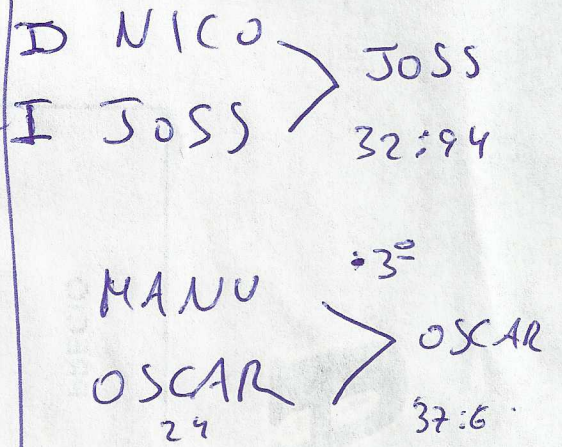 D NICO
I JOSS
JOSS
32:94
MANU
OSCAR
24
·3º
OSCAR
37:6